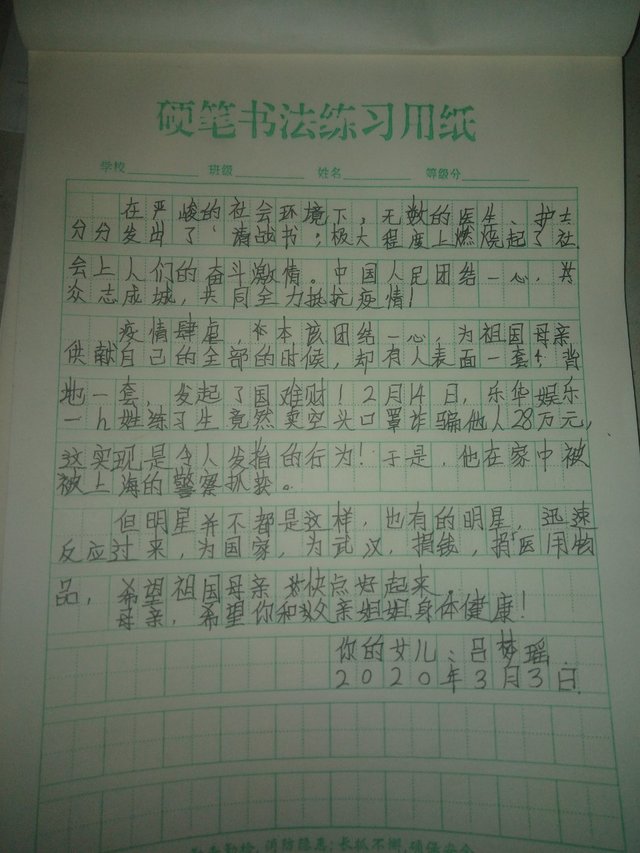 硬笔书法练习用纸
学校 班级 姓名 等级分
在严峻的社会环境下，无数的医生、护士
分分发出了“请战书”；极大程度上燃烧起了社
会上人们的奋斗激情。中国人民团结一心，共
众志成城，共同全力抵抗疫情！
疫情肆虐，本该团结一心，为祖国母亲
供献自己的全部的时候，却有人表面一套，背
地一套，发起了国难财！2月14日，乐华娱乐
一h姓练习生竟然卖空头口罩诈骗他人28万元，
这实现是令人发指的行为！于是，他在家中被
被上海的警察抓获。
但明星并不都是这样，也有的明星，迅速
反应过来，为国家，为武汉，捐钱，捐医用物
品，希望祖国母亲快点好起来，
母亲，希望你和父亲姐姐身体健康！
你的女儿：吕梦瑶
2020年3月3日
消防隐患；长抓不懈，确保安全